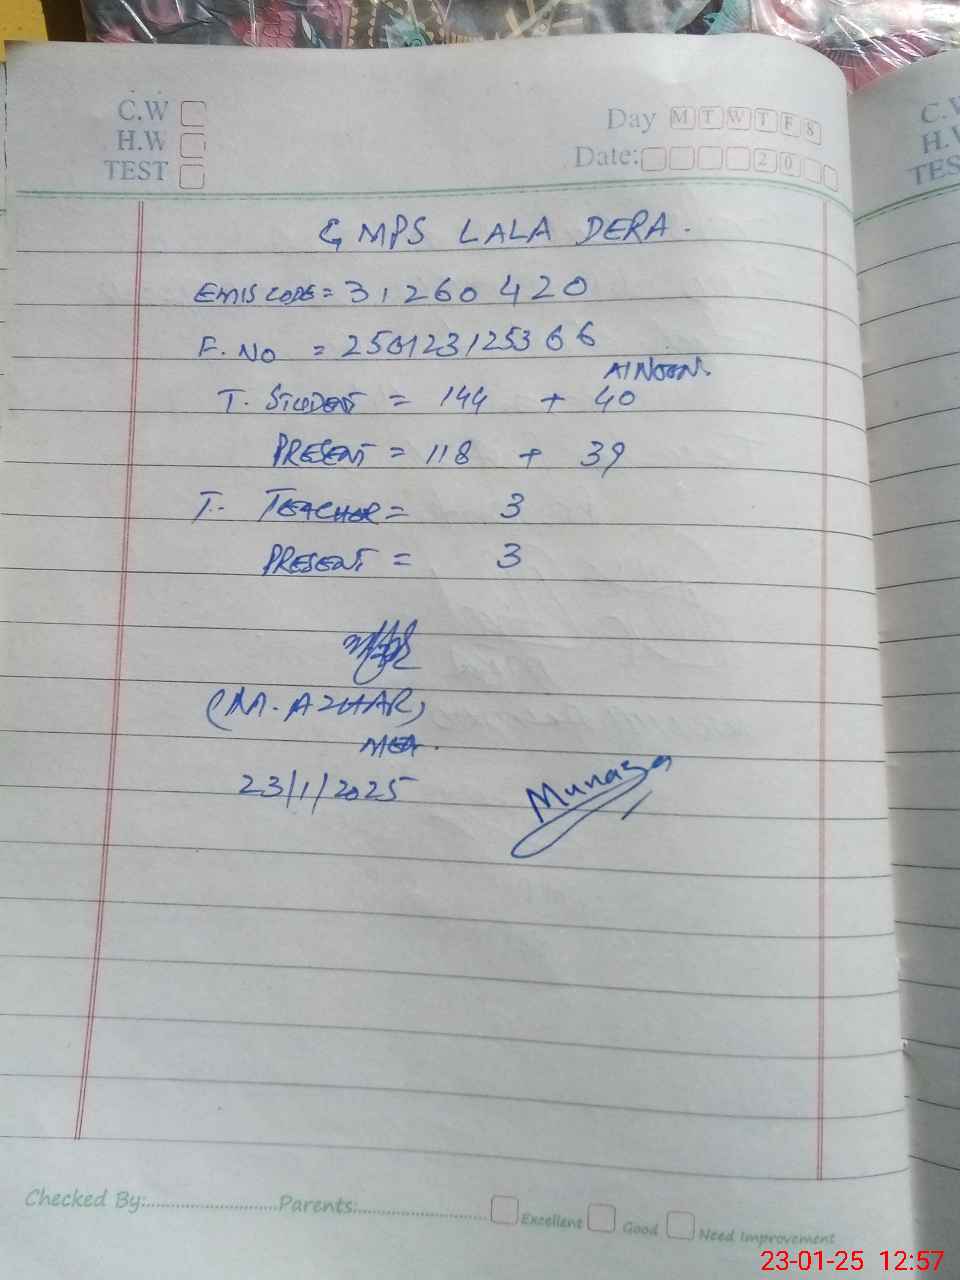 C.W
H.W
TEST
Day M T W T F S
Date: 2 0
C.W
H.W
TES
G MPS LALA DERA.
EMIS CODE = 31260420
F. NO = 250123125366
AINOON.
T. STUDENT = 144 + 40
PRESENT = 118 + 39
T. TEACHER = 3
PRESENT = 3
(M. AZHAR)
MEA.
23/1/2025
Munaza
Checked By:..........................Parents:.......................... Excellent Good Need Improvement
23-01-25 12:57